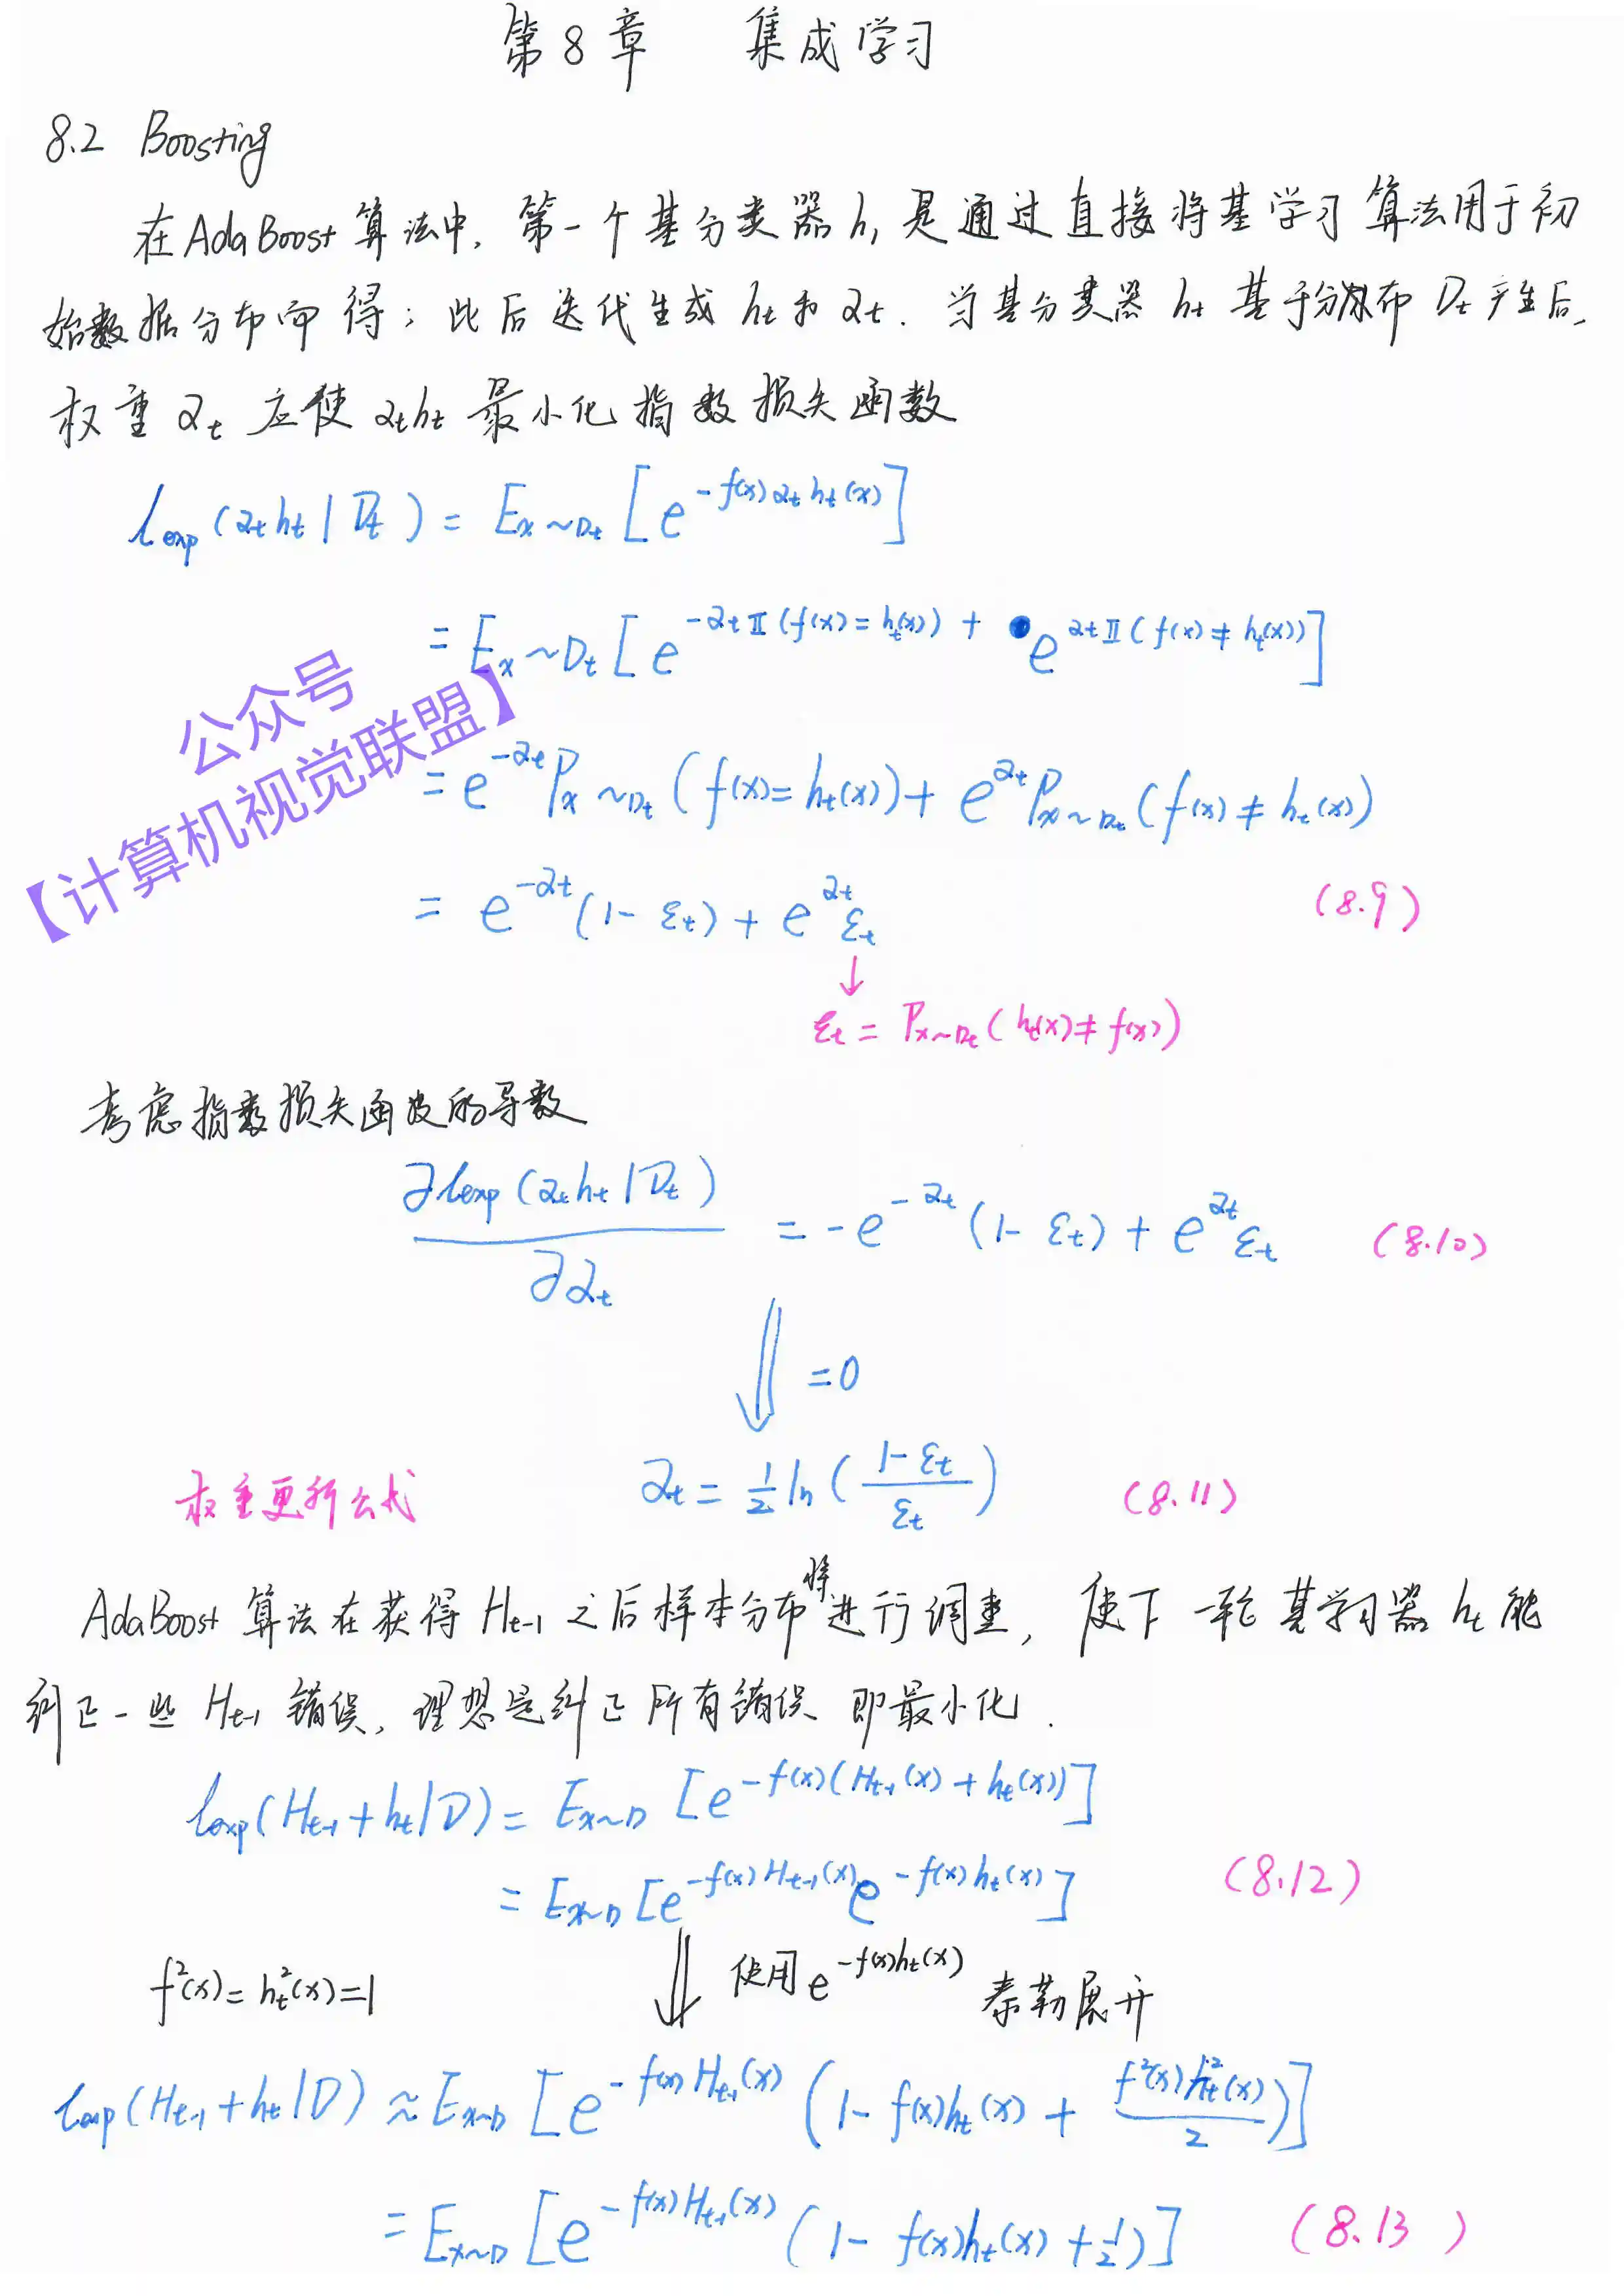 第8章 集成学习
8.2 Boosting
在AdaBoost算法中, 第一个基分类器h₁是通过直接将基学习算法用于初
始数据分布而得; 此后迭代生成hₜ和αₜ. 当基分类器hₜ基于分布Dₜ产生后,
权重αₜ应使αₜhₜ最小化指数损失函数
ℓexp(αₜhₜ|Dₜ) = E_{x∼Dₜ}[e^{-f(x)αₜhₜ(x)}]
= E_{x∼Dₜ}[e^{-αₜ𝕀(f(x)=hₜ(x))} + e^{αₜ𝕀(f(x)≠hₜ(x))}]
公众号
【计算机视觉联盟】
= e^{-αₜ}P_{x∼Dₜ}(f(x)=hₜ(x)) + e^{αₜ}P_{x∼Dₜ}(f(x)≠hₜ(x))
= e^{-αₜ}(1-εₜ) + e^{αₜ}εₜ (8.9)
↓
εₜ = P_{x∼Dₜ}(hₜ(x)≠f(x))
考虑指数损失函数的导数
∂ℓexp(αₜhₜ|Dₜ)/∂αₜ = -e^{-αₜ}(1-εₜ) + e^{αₜ}εₜ (8.10)
⇓ =0
权重更新公式 αₜ = ½ln((1-εₜ)/εₜ) (8.11)
AdaBoost算法在获得Hₜ₋₁之后样本分布将进行调整, 使下一轮基学习器hₜ能
纠正一些Hₜ₋₁错误, 理想是纠正所有错误 即最小化.
ℓexp(Hₜ₋₁+hₜ|D) = E_{x∼D}[e^{-f(x)(Hₜ₋₁(x)+hₜ(x))}]
= E_{x∼D}[e^{-f(x)Hₜ₋₁(x)}e^{-f(x)hₜ(x)}] (8.12)
f²(x)=hₜ²(x)=1 ⇓ 使用e^{-f(x)hₜ(x)} 泰勒展开
ℓexp(Hₜ₋₁+hₜ|D) ≈ E_{x∼D}[e^{-f(x)Hₜ₋₁(x)}(1-f(x)hₜ(x)+f²(x)hₜ²(x)/2)]
= E_{x∼D}[e^{-f(x)Hₜ₋₁(x)}(1-f(x)hₜ(x)+½)] (8.13)